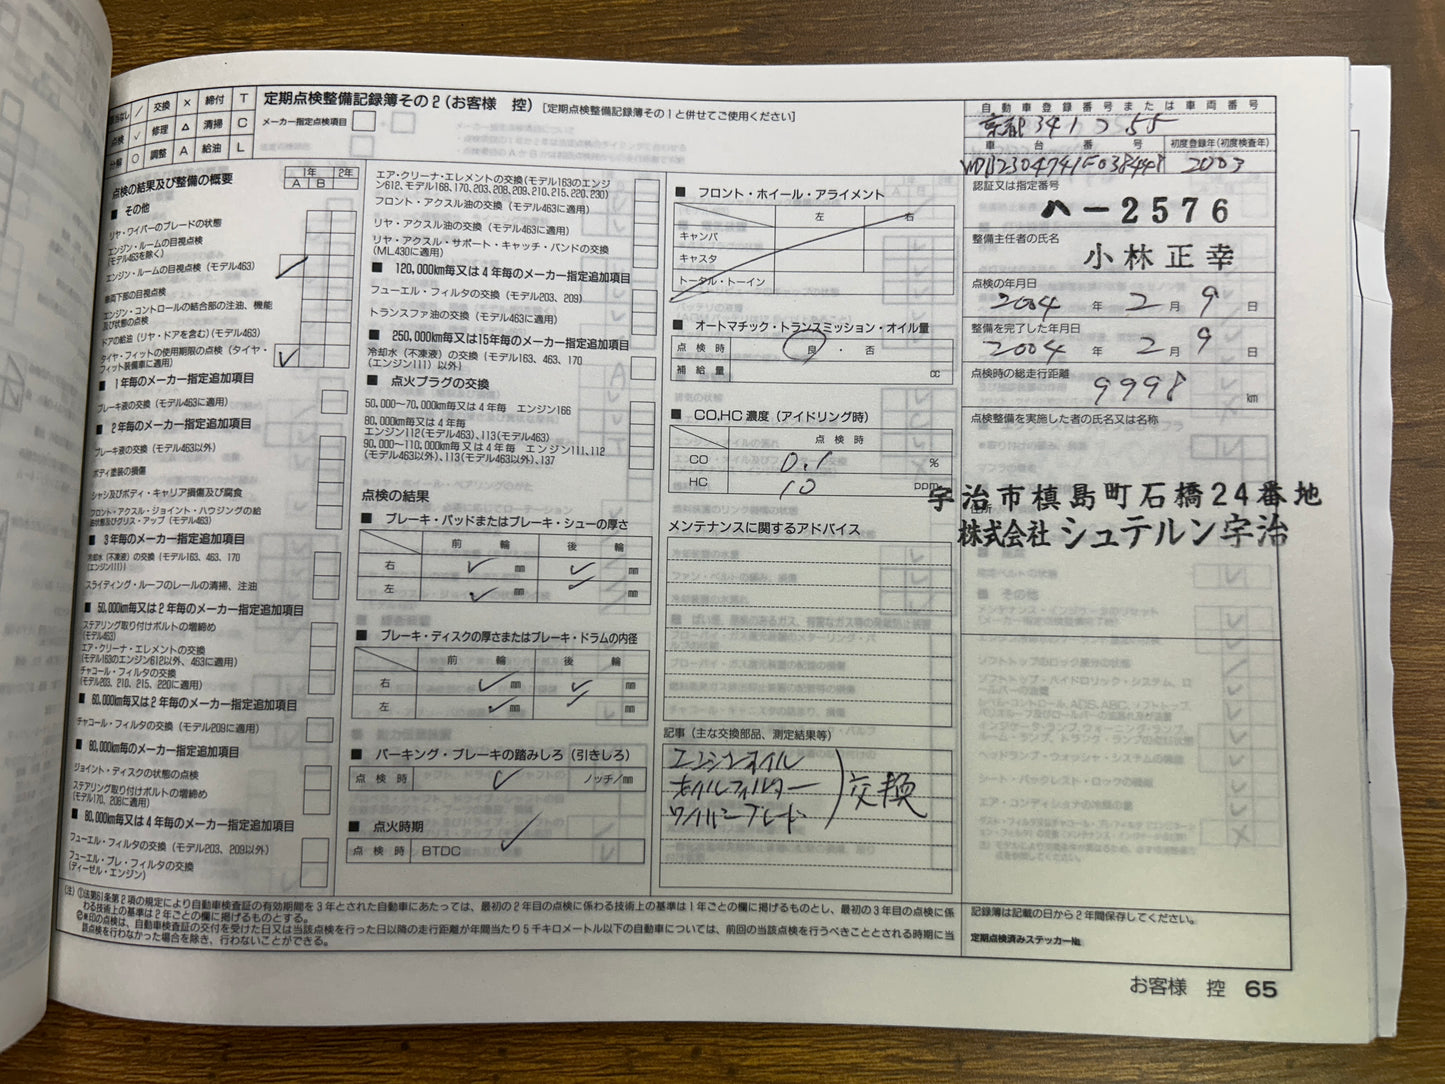 交換 × 締付 T
点検 ✓ 修理 △ 清掃 C
分解 ○ 調整 A 給油 L
定期点検整備記録簿その2(お客様 控)[定期点検整備記録簿その1と併せてご使用ください]
メーカー指定点検項目
点検の結果及び整備の概要
1年 2年
A B
■ その他
リヤ・ワイパーのブレードの状態
エンジン・ルームの目視点検
(モデル463を除く)
エンジン・ルームの目視点検(モデル463)
車両下部の目視点検
エンジン・コントロールの結合部の注油、機能
及び状態の点検
ドアの給油(リヤ・ドアを含む)(モデル463)
タイヤ・フィットの使用期限の点検(タイヤ・
フィット装備車に適用)
■ 1年毎のメーカー指定追加項目
ブレーキ液の交換(モデル463に適用)
■ 2年毎のメーカー指定追加項目
ブレーキ液の交換(モデル463以外)
ボディ塗装の損傷
シャシ及びボディ・キャリア損傷及び腐食
フロント・アクスル・ジョイント・ハウジングの給
油状態及びグリス・アップ(モデル463)
■ 3年毎のメーカー指定追加項目
冷却水(不凍液)の交換(モデル163、463、170
(エンジン111))
スライディング・ルーフのレールの清掃、注油
■ 50,000km毎又は2年毎のメーカー指定追加項目
ステアリング取り付けボルトの増締め
(モデル463)
エア・クリーナ・エレメントの交換
(モデル163のエンジン612以外、463に適用)
チャコール・フィルタの交換
(モデル203、210、215、220に適用)
■ 60,000km毎又は2年毎のメーカー指定追加項目
チャコール・フィルタの交換(モデル209に適用)
■ 80,000km毎又は2年毎のメーカー指定追加項目
ジョイント・ディスクの状態の点検
ステアリング取り付けボルトの増締め
(モデル170、208に適用)
■ 80,000km毎又は4年毎のメーカー指定追加項目
フューエル・フィルタの交換(モデル203、209以外)
フューエル・プレ・フィルタの交換
(ディーゼル・エンジン)
エア・クリーナ・エレメントの交換(モデル163のエンジ
ン612、モデル168、170、203、208、209、210、215、220、230)
フロント・アクスル油の交換(モデル463に適用)
リヤ・アクスル油の交換(モデル463に適用)
リヤ・アクスル・サポート・キャッチ・バンドの交換
(ML430に適用)
■ 120,000km毎又は4年毎のメーカー指定追加項目
フューエル・フィルタの交換(モデル203、209)
トランスファ油の交換(モデル463に適用)
■ 250,000km毎又は15年毎のメーカー指定追加項目
冷却水(不凍液)の交換(モデル163、463、170
(エンジン111)以外)
■ 点火プラグの交換
50,000~70,000km毎又は4年毎 エンジン166
80,000km毎又は4年毎
エンジン112(モデル463)、113(モデル463)
90,000~110,000km毎又は4年毎 エンジン111、112
(モデル463以外)、113(モデル463以外)、137
点検の結果
■ ブレーキ・パッドまたはブレーキ・シューの厚さ
前 輪 後 輪
右 ✓ mm ✓ mm
左 ✓ mm ✓ mm
■ ブレーキ・ディスクの厚さまたはブレーキ・ドラムの内径
前 輪 後 輪
右 ✓ mm ✓ mm
左 ✓ mm ✓ mm
■ パーキング・ブレーキの踏みしろ(引きしろ)
点検時 ✓ ノッチ/mm
■ 点火時期
点検時 BTDC ✓
■ フロント・ホイール・アライメント
左 右
キャンバ
キャスタ
トータル・トーイン
■ オートマチック・トランスミッション・オイル量
点検時 良・否
補給量 cc
■ CO,HC濃度(アイドリング時)
点検時
CO 0.1 %
HC 10 ppm
メンテナンスに関するアドバイス
記事(主な交換部品、測定結果等)
エンジンオイル
オイルフィルター
ワイパーブレード
交換
自動車登録番号または車両番号
京都341 55
車台番号 初度登録年(初度検査年)
2003
認証又は指定番号
ハ-2576
整備主任者の氏名
小林正幸
点検の年月日
2004 年 2 月 9 日
整備を完了した年月日
2004 年 2 月 9 日
点検時の総走行距離
9998 km
点検整備を実施した者の氏名又は名称
宇治市槙島町石橋24番地
住所
株式会社シュテルン宇治
(注)①法第61条第2項の規定により自動車検査証の有効期間を3年とされた自動車にあたっては、最初の2年目の点検に係わる技術上の基準は1年ごとの欄に掲げるものとし、最初の3年目の点検に係
わる技術上の基準は2年ごとの欄に掲げるものとする。
②※印の点検は、自動車検査証の交付を受けた日又は当該点検を行った日以降の走行距離が年間当たり5千キロメートル以下の自動車については、前回の当該点検を行うべきこととされる時期に当
該点検を行わなかった場合を除き、行わないことができる。
記録簿は記載の日から2年間保存してください。
定期点検済みステッカー№
お客様 控 65